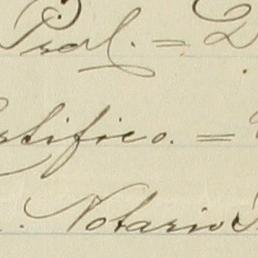 Pral. = D
ertifico. =
. Notario